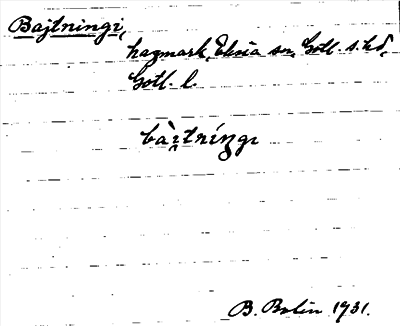 Bajtningi,
hagmark, Eksta sn, Gotl. s. hd,
Gotl. l.
bàɪ̯tníŋgɪ
B. Bolin 1931.